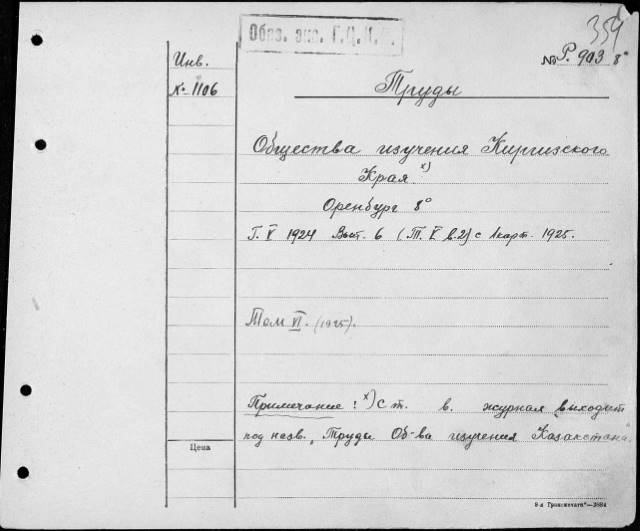 359
Обяз. экз. Г.Ц.К.
Инв.
№ 1106
№ Р. 903 8°
Труды
Общества изучения Киргизского
Края x)
Оренбург 8°
Г. V 1924 Вып. 6 (Т. V в. 2) с 1 карт. 1925.
Том VI. (1925).
Примечание: x) С т. в. журнал выходит
под назв. „Труды Об-ва изучения Казакстана"
Цена